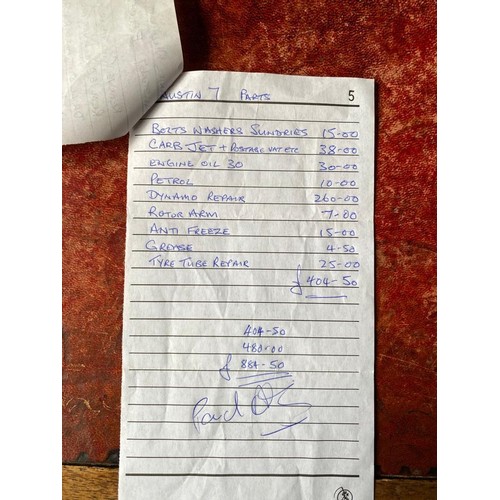 AUSTIN 7 PARTS 5
BOLTS WASHERS SUNDRIES 15-00
CARB JET + POSTAGE VAT ETC 38-00
ENGINE OIL 30 30-00
PETROL 10-00
DYNAMO REPAIR 260-00
ROTOR ARM 7-00
ANTI FREEZE 15-00
GREASE 4-50
TYRE TUBE REPAIR 25-00
£404-50
404-50
480-00
£ 884-50
Paid